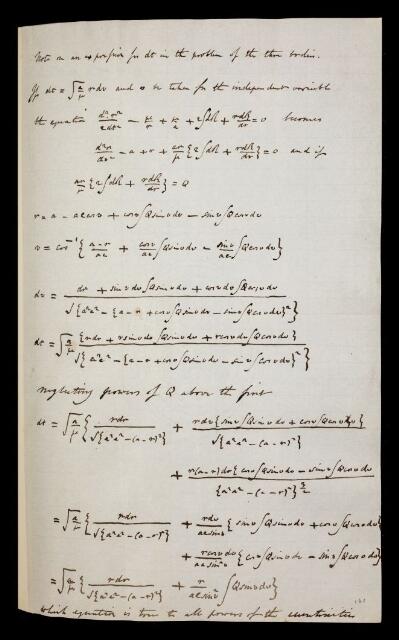 Note on an expression for dt in the problem of the three bodies.
If dt = √(a/μ) r dv and v be taken for the independent variable
the equation d².r²/2dt² − μ/r + μ/a + 2∫dR + r dR/dr = 0 becomes
d²r/dv² − a + r + ar/μ {2∫dR + r dR/dr} = 0 and if
ar/μ {2∫dR + r dR/dr} = Q
r = a − ae cos v + cos v ∫Q sin v dv − sin v ∫Q cos v dv
v = cos⁻¹ { (a − r)/ae + cos v/ae ∫Q sin v dv − sin v/ae ∫Q cos v dv }
dv = (dr + sin v dv ∫Q sin v dv + cos v dv ∫Q cos v dv) / √{a²e² − {a − r + cos v ∫Q sin v dv − sin v ∫Q cos v dv}²}
dt = √(a/μ) {r dr + r sin v dv ∫Q sin v dv + r cos v dv ∫Q cos v dv} / √{a²e² − {a − r + cos v ∫Q sin v dv − sin v ∫Q cos v dv}²}
neglecting powers of Q above the first
dt = √(a/μ) { r dr / √{a²e² − (a − r)²} + r dv {sin v ∫Q sin v dv + cos v ∫Q cos v dv} / √{a²e² − (a − r)²}
+ r(a − r) dr {cos v ∫Q sin v dv − sin v ∫Q cos v dv} / {a²e² − (a − r)²}^(3/2)
= √(a/μ) { r dr / √{a²e² − (a − r)²} + r dv / ae sin v { sin v ∫Q sin v dv + cos v ∫Q cos v dv}
+ r cos v dv / ae sin² v {cos v ∫Q sin v dv − sin v ∫Q cos v dv}
= √(a/μ) { r dr / √{a²e² − (a − r)²} + r / ae sin² v ∫Q sin v dv}
which equation is true to all powers of the eccentricities